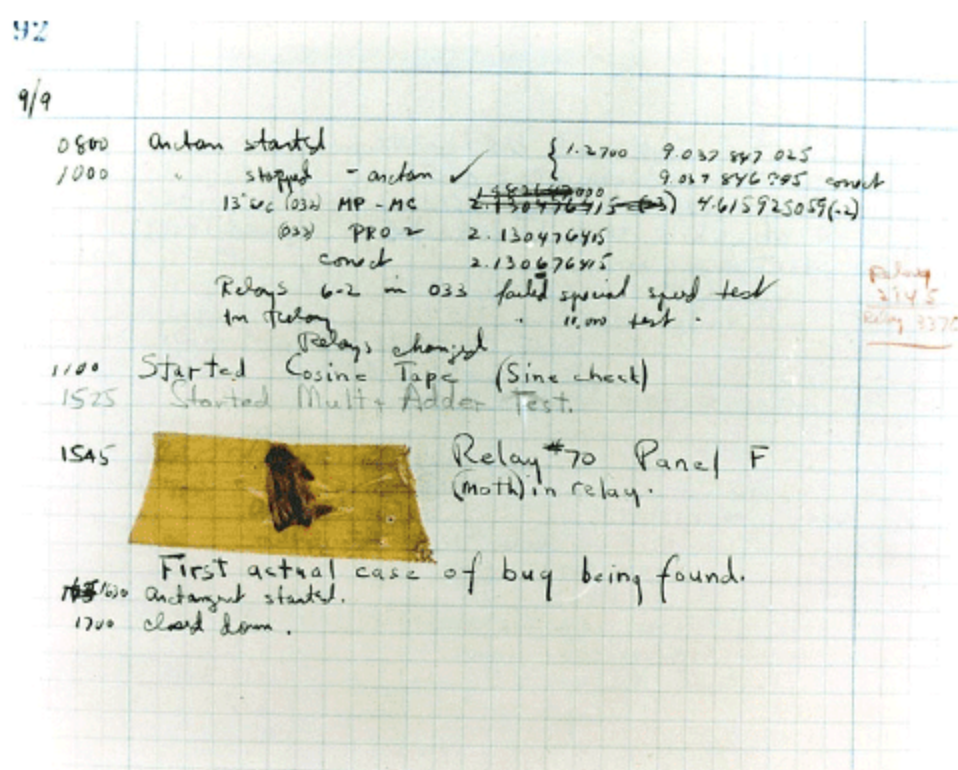 92
9/9
0800 arctan started
1000 " stopped - arctan ✓ { 1.2700 9.037 847 025
9.037 846 795 correct
13"uc (032) MP - MC 2.130476415 (-3) 4.615925059(-2)
(033) PRO 2 2.130476415
correct 2.130676415
Relays 6-2 in 033 failed special speed test
in relay " 11.000 test .
Relay
2145
Relay 3370
Relays changed
1100 Started Cosine Tape (Sine check)
1525 Started Mult + Adder Test.
1545 Relay #70 Panel F
(moth) in relay.
First actual case of bug being found.
1630 arctangent started.
1700 closed down .